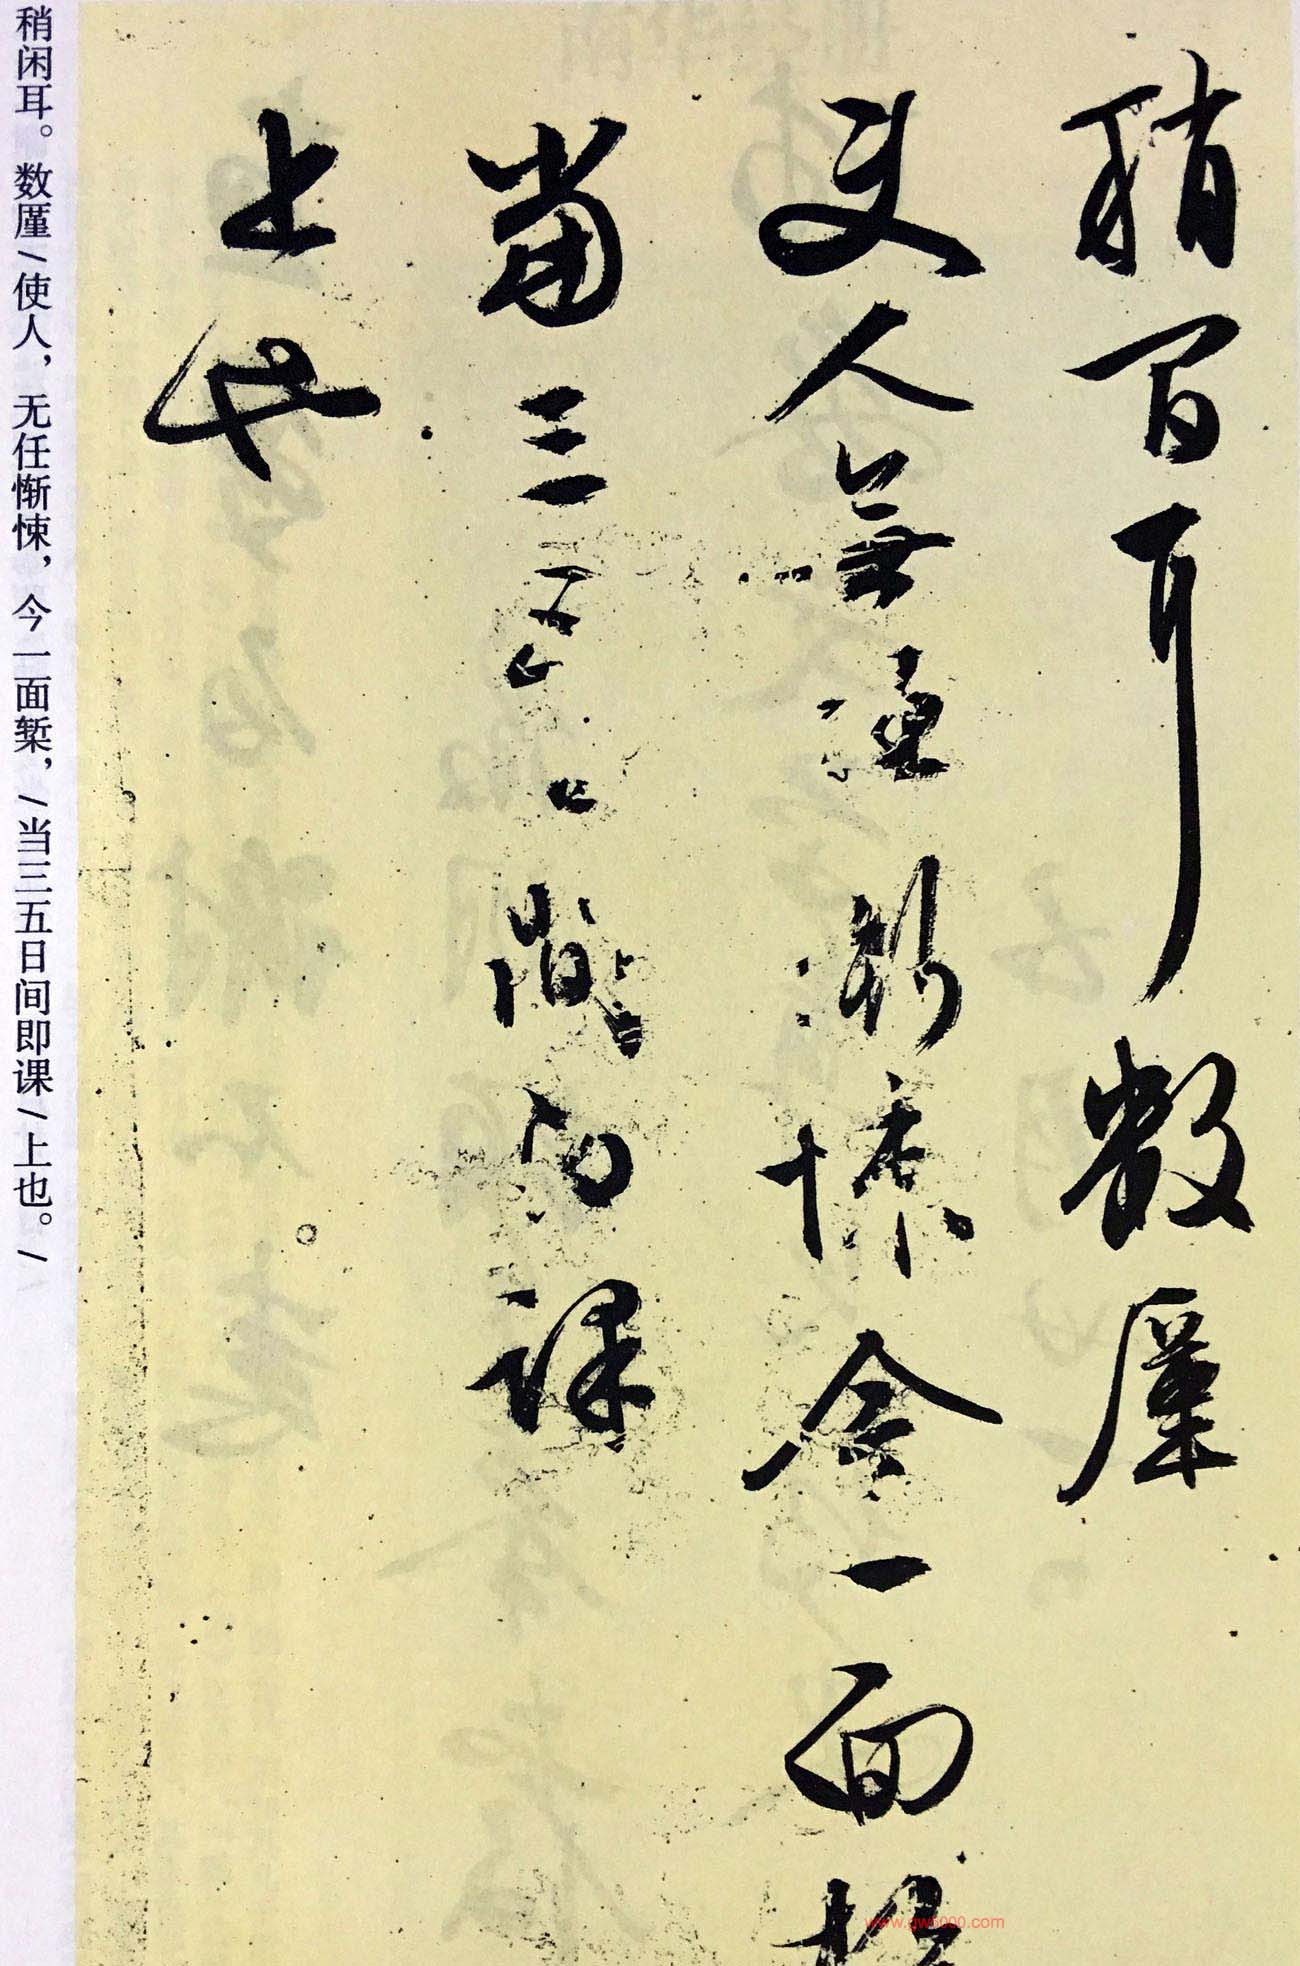 稍闲耳。数廑/使人，无任惭悚，今一面椠，/当三五日间即课/上也。/
稍间耳数廑
使人無任慙悚今一面
当三五日間即課
上也
www.gw5000.com